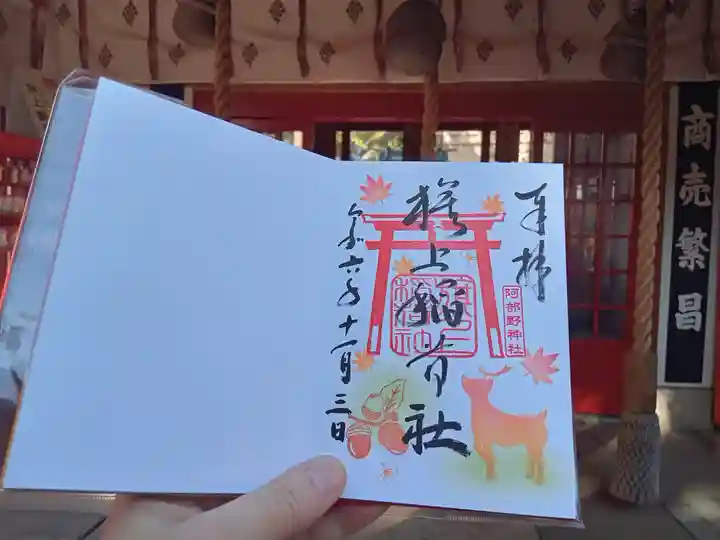 奉拝
旗上稲荷社
阿部野神社
令和六年十一月三日
商売繁昌